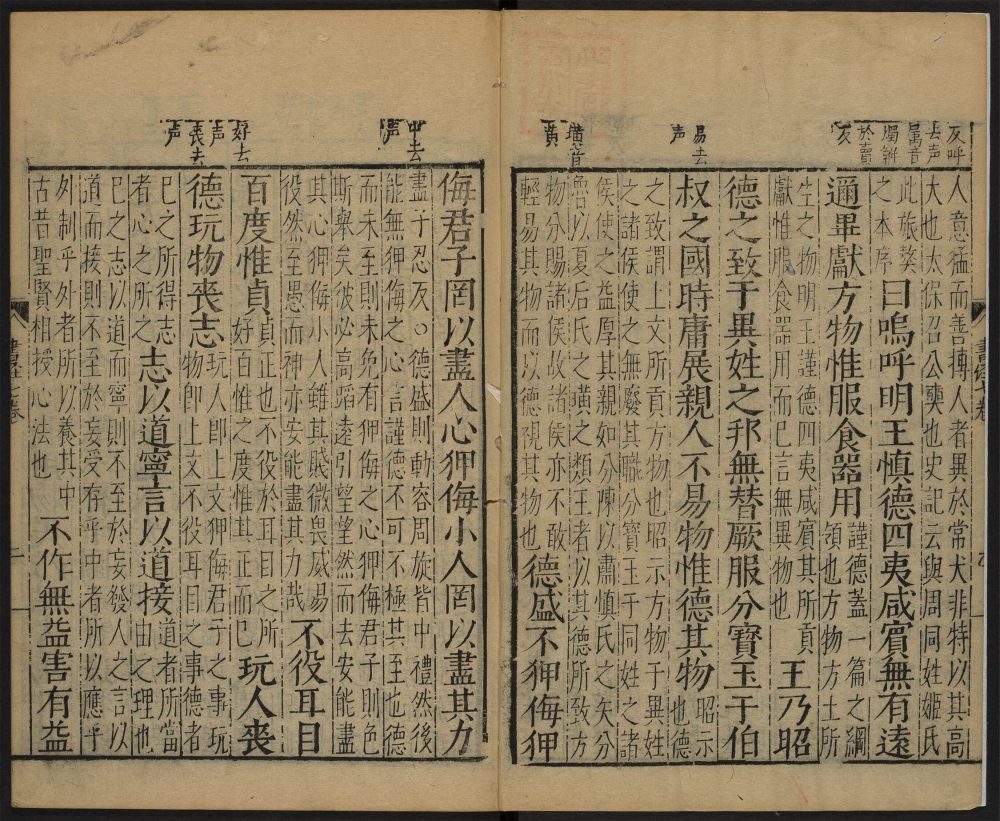 反呼
去声
屬音
於賣
反
易去
声
璜音
黃
人意猛而善搏人者異於常犬非特以其高
大也太保召公奭也史記云與周同姓姬氏
此旅獒
之本序
曰嗚呼明王慎德四夷咸賓無有遠
邇畢獻方物惟服食器用
謹德蓋一篇之綱
領也方物方土所
生之物明王謹德四夷咸賓其所貢
獻惟服食器用而已言無異物也
王乃昭
德之致于異姓之邦無替厥服分寶玉于伯
叔之國時庸展親人不易物惟德其物
昭示
也德
之致謂上文所貢方物也昭示方物于異姓
之諸侯使之無廢其職分寶玉于同姓之諸
侯使之益厚其親如分陳以肅慎氏之矢分
魯以夏后氏之璜之類王者以其德所致方
物分賜諸侯故諸侯亦不敢
輕易其物而以德視其物也
德盛不狎侮狎
中去
声
好去
声
喪去
声
侮君子罔以盡人心狎侮小人罔以盡其力
盡子忍反○德盛則動容周旋皆中禮然後
能無狎侮之心言謹德不可不極其至也德
而未至則未免有狎侮之心狎侮君子則色
斯舉矣彼必高蹈遠引望望然而去安能盡
其心狎侮小人雖其賤微畏威易
役然至愚而神亦安能盡其力哉
不役耳目
百度惟貞
貞正也不役於耳目之所
好百惟之度惟其正而已
玩人喪
德玩物喪志
玩人即上文狎侮君子之事玩
物即上文不役耳目之事德者
己之所得志
者心之所之
志以道寧言以道接
道者所當
由之理也
己之志以道而寧則不至於妄發人之言以
道而接則不至於妄受存乎中者所以應乎
外制乎外者所以養其中
古昔聖賢相授心法也
不作無益害有益